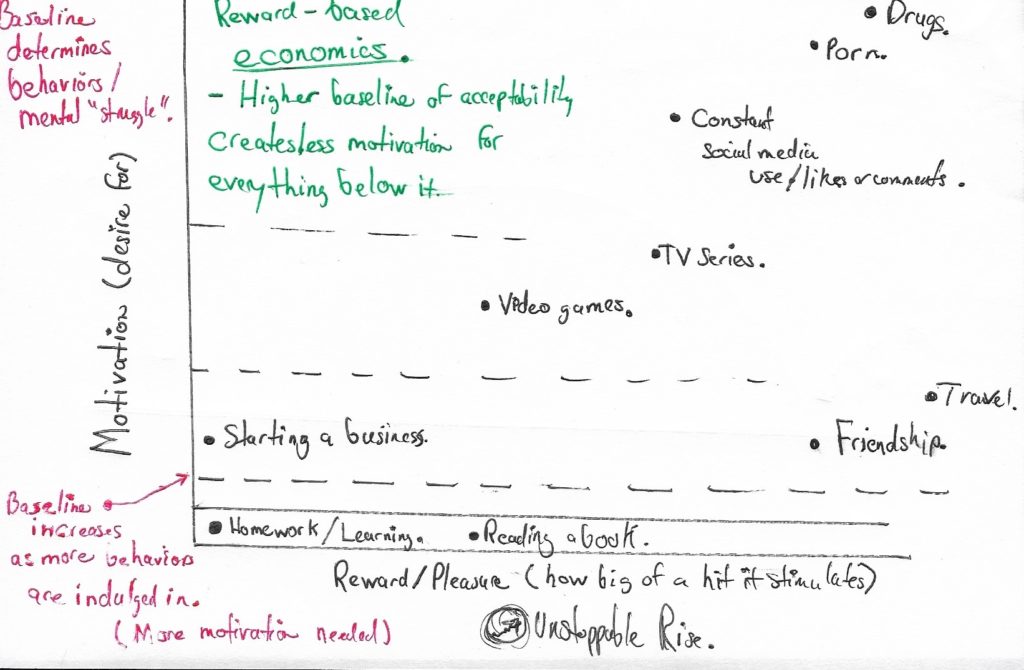 Baseline
determines
behaviors/
mental "struggle".
Reward-based
economics.
- Higher baseline of acceptability
creates less motivation for
everything below it.
Drugs.
Porn.
Constant
social media
use/likes or comments.
TV Series.
Video games.
Travel.
Starting a business.
Friendship.
Homework/Learning.
Reading a book.
Motivation (desire for)
Reward/Pleasure (how big of a hit it stimulates)
Baseline
increases
as more behaviors
are indulged in.
(More motivation needed)
Unstoppable Rise.